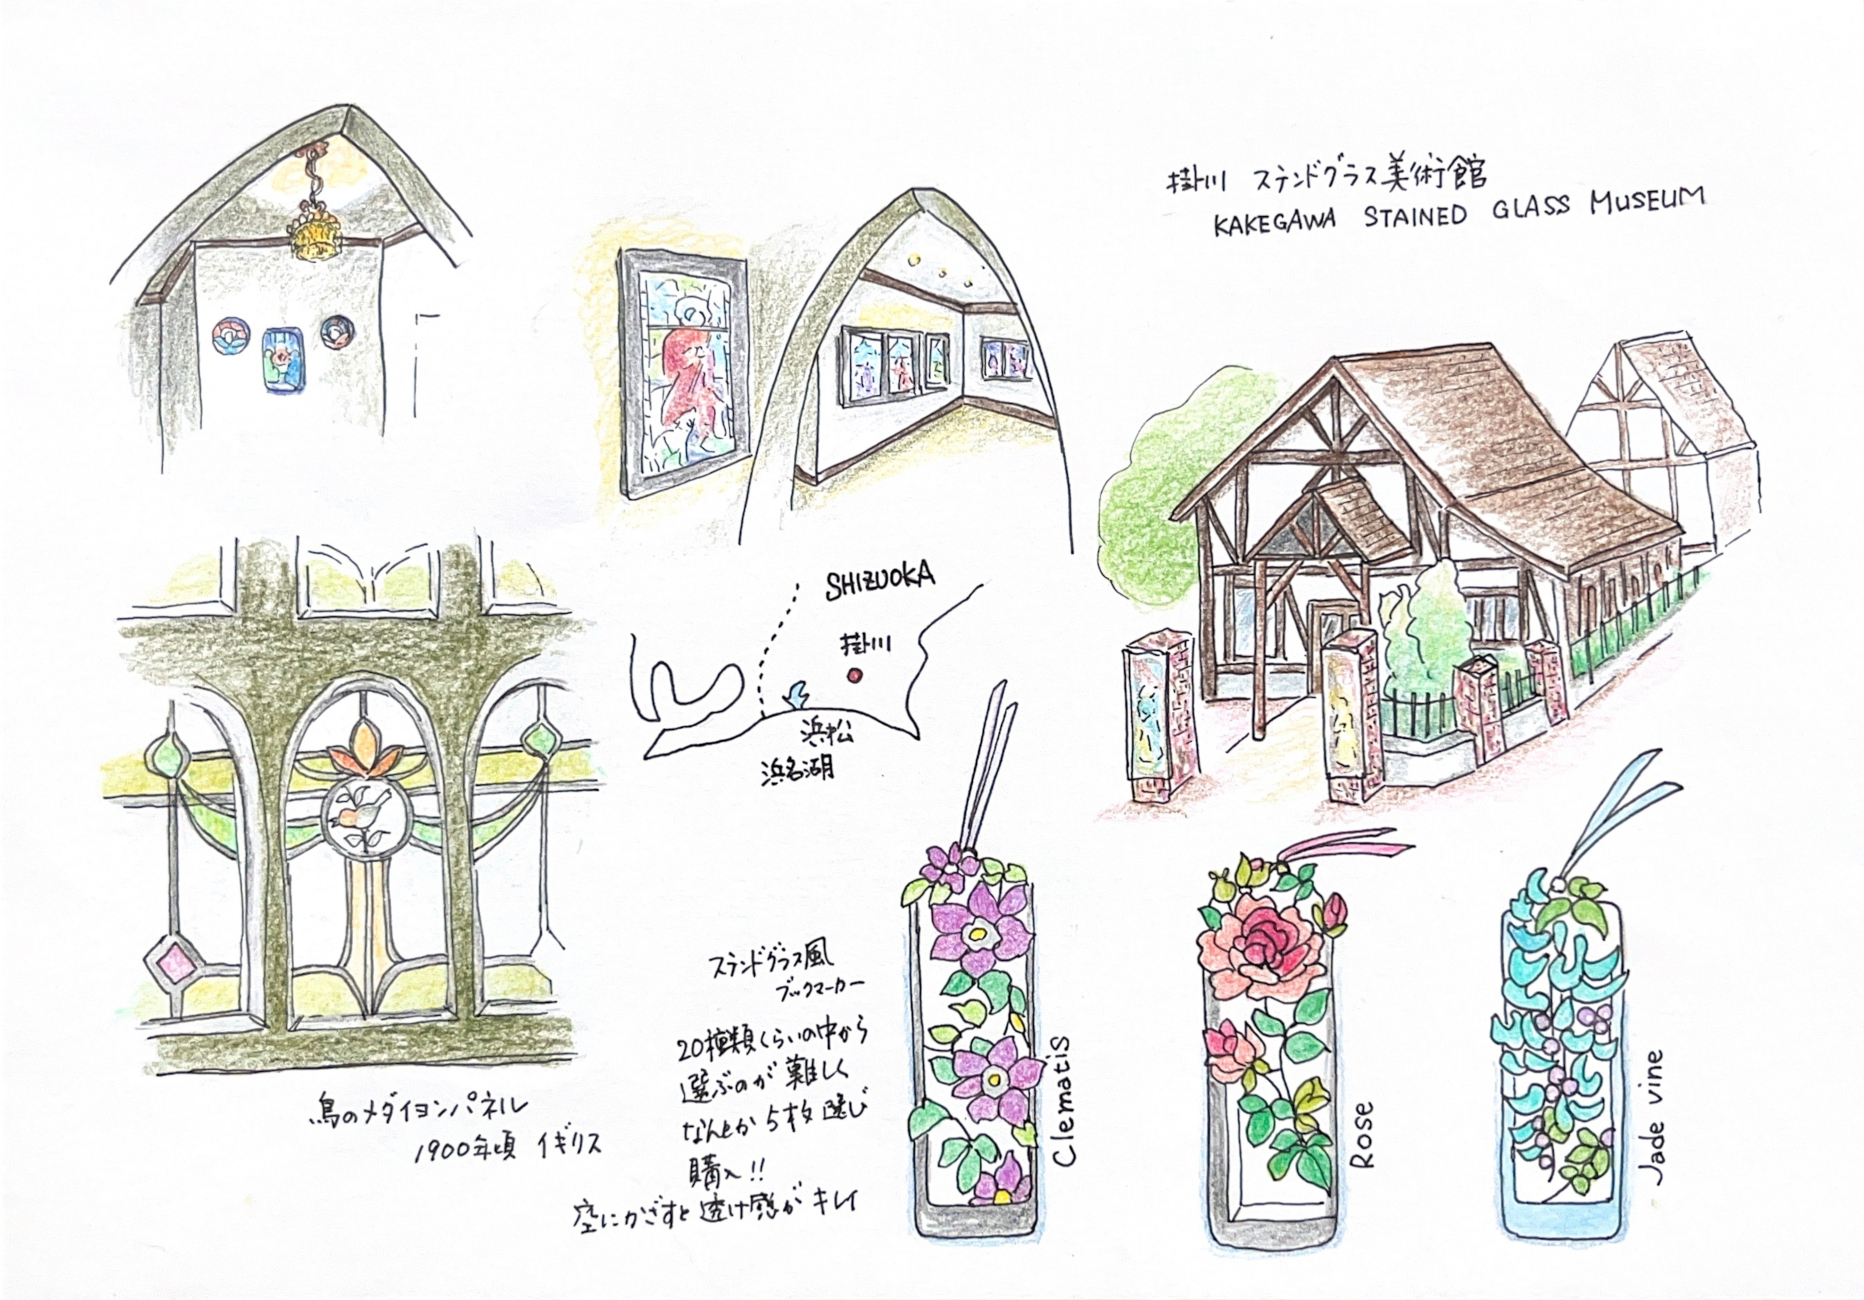 掛川 ステンドグラス美術館
KAKEGAWA STAINED GLASS MUSEUM
SHIZUOKA
掛川
浜松
浜名湖
鳥のメダイヨンパネル
1900年頃 イギリス
ステンドグラス風
ブックマーカー
20種類くらいの中から
選ぶのが難しく
なんとか5枚選び
購入!!
空にかざすと透け感がキレイ
Clematis
Rose
Jade vine